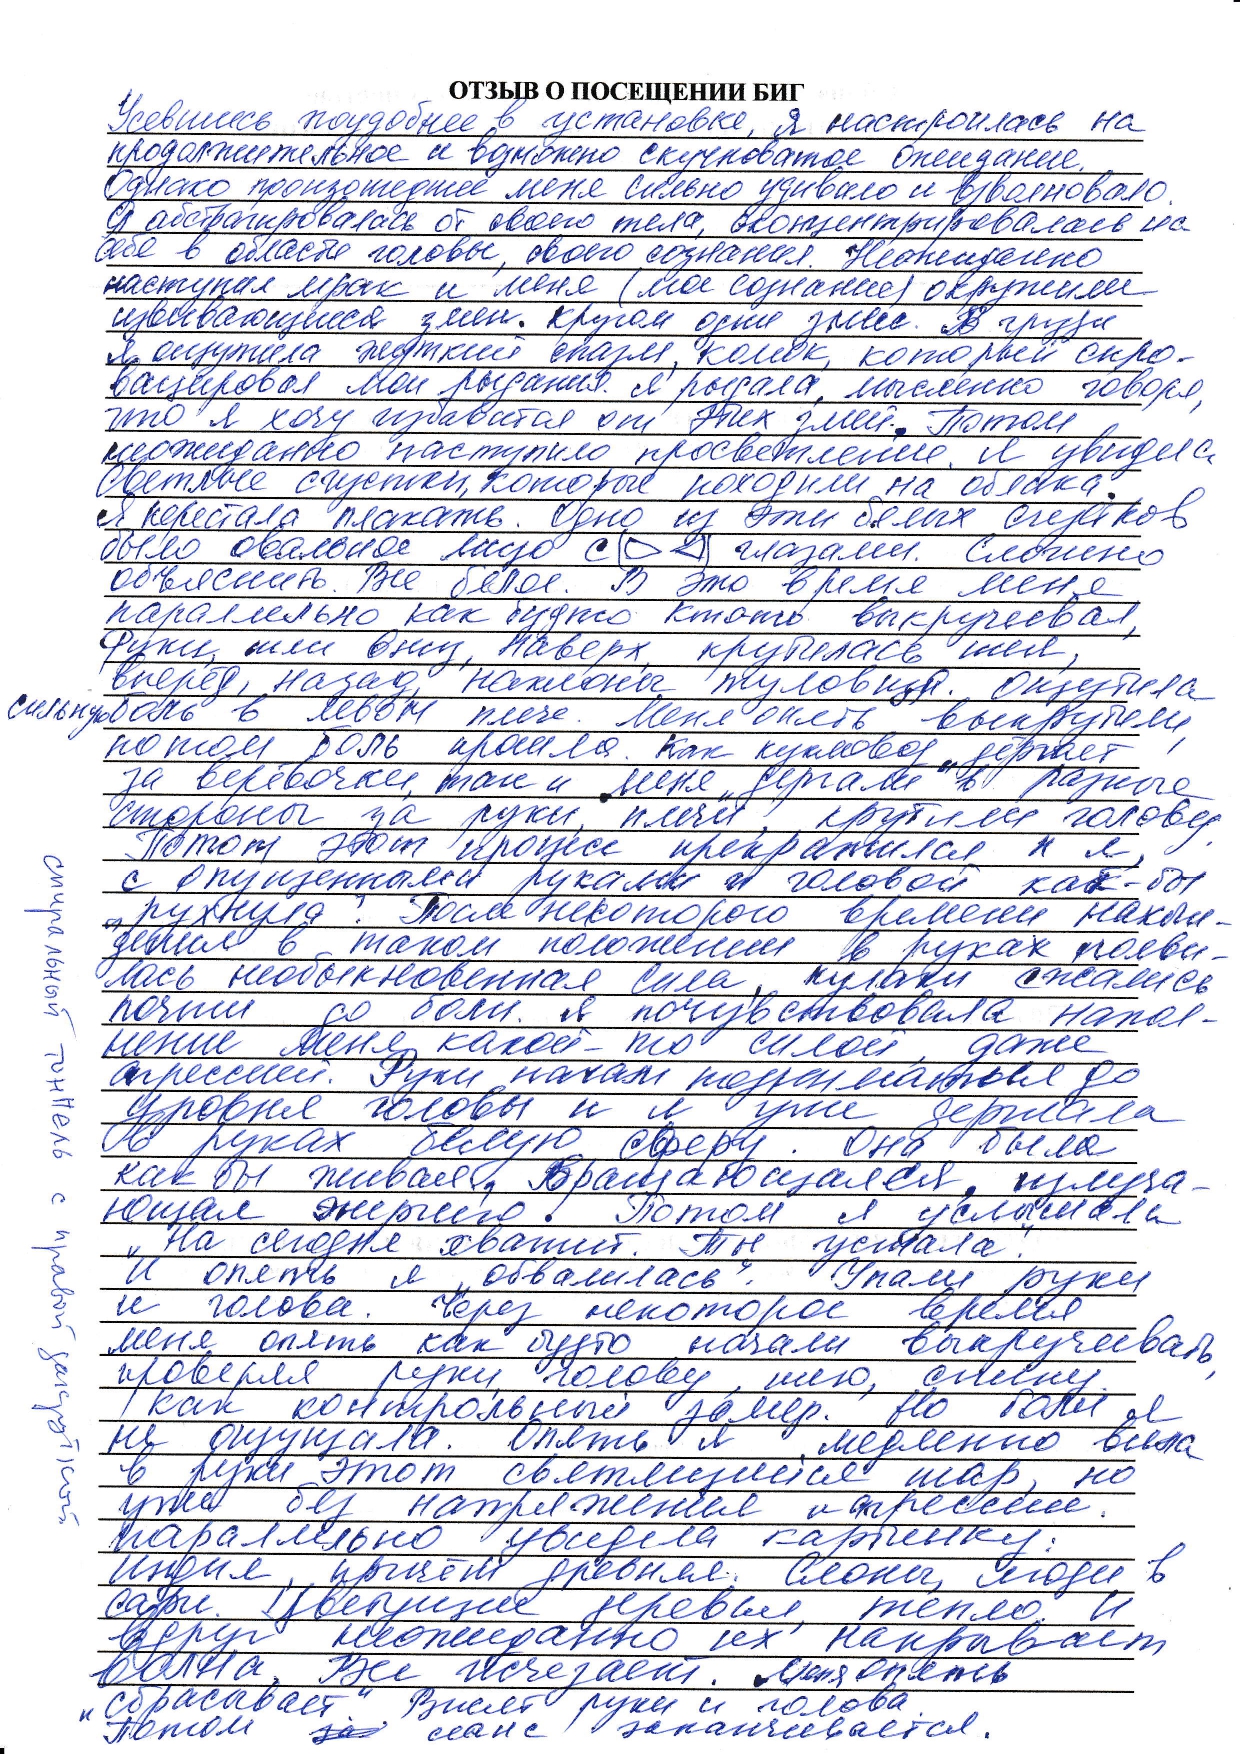 ОТЗЫВ О ПОСЕЩЕНИИ БИГ
Усевшись поудобнее в установке, я настроилась на
продолжительное и возможно скучноватое ожидание.
Однако произошедшее меня сильно удивило и взволновало.
Я абстрагировалась от своего тела, сконцентрировалась на
себе в области головы, своего сознания. Неожиданно
наступил мрак и меня (мое сознание) окружили
извивающиеся змеи. Кругом одни змеи. В груди
я ощутила жуткий спазм, комок, который спро-
вацировал мои рыдания. Я рыдала, мысленно говоря,
что я хочу избавится от этих змей. Потом
неожиданно наступило просветление. Я увидела
светлые сгустки, которые походили на облака.
Я перестала плакать. Одно из эти белых сгустков
было овальное лицо с глазами. Сложно
объяснить. Все белое. В это время меня
параллельно как будто ктото выкручивал,
Руки шли вниз, наверх, крутилась шея,
вперёд, назад, наклоны туловища. Ощутила
сильную боль в левом плече. Меня опять выкрутили,
потом боль прошла. Как кукловод „дёргает
за верёвочки, так и меня „дергали" в разные
стороны за руки, плечи, крутили голову.
Потом этот процесс прекратился и я,
с опущенными руками и головой как-бы
„рухнула". После некоторого времени нахож-
дения в таком положении в руках появи-
лась необыкновенная сила, кулаки сжались
почти до боли. Я почувствовала напол-
нение меня какой-то силой, даже
агрессией. Руки начали подниматься до
уровня головы и я уже держала
в руках белую сферу. Она была
как бы живая, вращающаяся, излуча-
ющая энергию. Потом я услышала
„На сегодня хватит. Ты устала".
И опять я „обвалилась". Упали руки
и голова. Через некоторое время
меня опять как будто начали выкручивать,
проверяя руки, голову, шею, спину.
Как контрольный замер. Но боли я
не ощущала. Опять я медленно взяла
в руки этот светящийся шар, но
уже без напряжения и агрессии.
Параллельно увидела картинку:
Индия, причём древняя. Слоны, люди в
сари. Цветущие деревья, тепло. И
вдруг неожиданно их накрывает
волна. Все исчезает. Меня опять
„сбрасывает". Висят руки и голова.
Потом сеанс заканчивается.
спиральный тоннель с правой закруткой